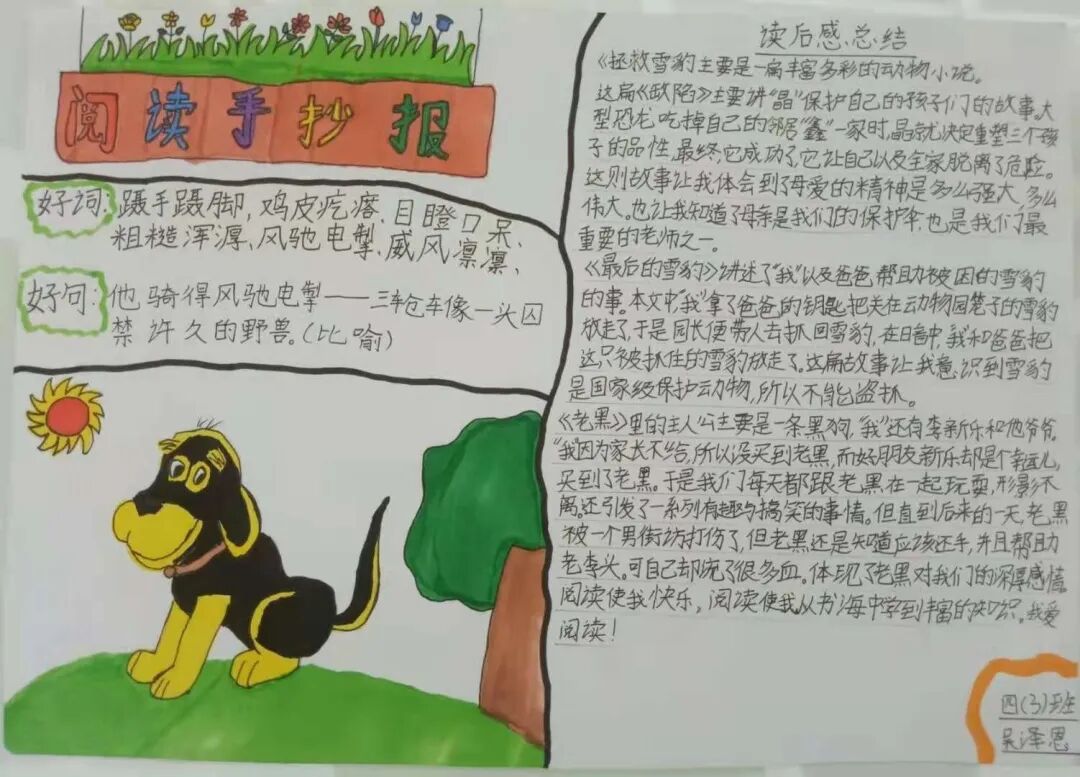 阅读手抄报
好词:蹑手蹑脚,鸡皮疙瘩、目瞪口呆、
粗糙浑源、风驰电掣、威风凛凛、
好句:他骑得风驰电掣——三轮车像一头囚
禁许久的野兽。(比喻)
读后感总结
《拯救雪豹主要是一扁丰富多彩的动物小说。
这扁《缺陷》主要讲“晶”保护自己的孩子们的故事。大
型恐龙吃掉自己的邻居“鑫”一家时,晶就决定重塑三个孩
子的品性,最终,它成功了,它让自己以及全家脱离了危险。
这则故事让我体会到了母爱的精神是多么强大,多么
伟大。也让我知道了母亲是我们的保护伞,也是我们最
重要的老师之一。
《最后的雪豹》讲述了“我”以及爸爸帮助被困的雪豹
的事。本文中“我”拿了爸爸的钥匙把关在动物园笼子的雪豹
放走了,于是园长便带人去抓回雪豹,在暗中,我和爸爸把
这只被抓住的雪豹放走了。这扁故事让我意识到雪豹
是国家级保护动物,所以不能盗抓。
《老黑》里的主人公主要是一条黑狗,“我”还有李新乐和他爷爷。
“我”因为家长不给,所以没买到老黑,而好朋友新乐却是个幸运儿,
买到了老黑。于是我们每天都跟老黑在一起玩耍,形影不
离。还引发了一系列有趣与搞笑的事情。但直到后来的一天,老黑
被一个男街坊打伤了,但老黑还是知道应该还手,并且帮助
老李头。可自己却流了很多血。体现了老黑对我们的深厚感情。
阅读使我快乐,阅读使我从书海中学到丰富的知识。我爱
阅读!
四(3)班
吴泽恩